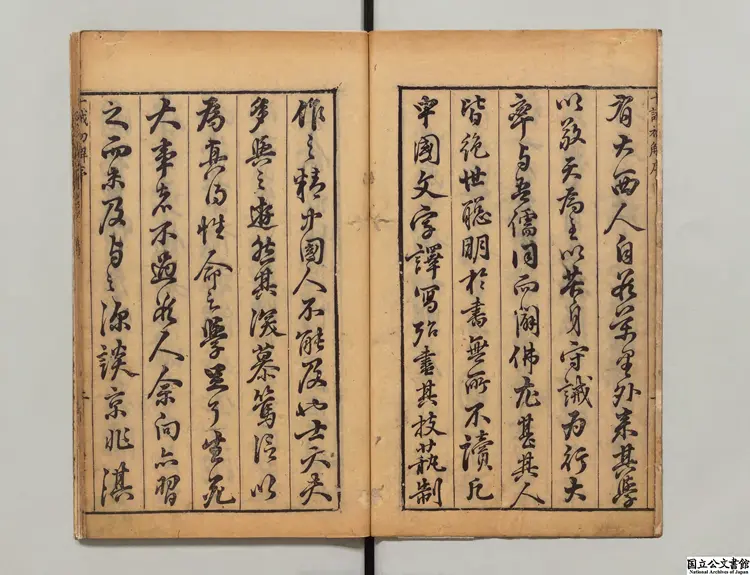 一誡初解序
有大西人自數萬里外來其學
以敬天為主以苦身守誡為行大
率與吾儒同而闢佛尤甚其人
皆絕世聰明於書無所不讀凡
中國文字譯寫殆盡其技藝制
作之精中國人不能及也士大夫
多與之遊然其深慕篤信以
為真得性命之學足了生死
大事者不過數人余向亦習
之而未及與之深談京兆淇
一誡初解序
国立公文書館
National Archives of Japan